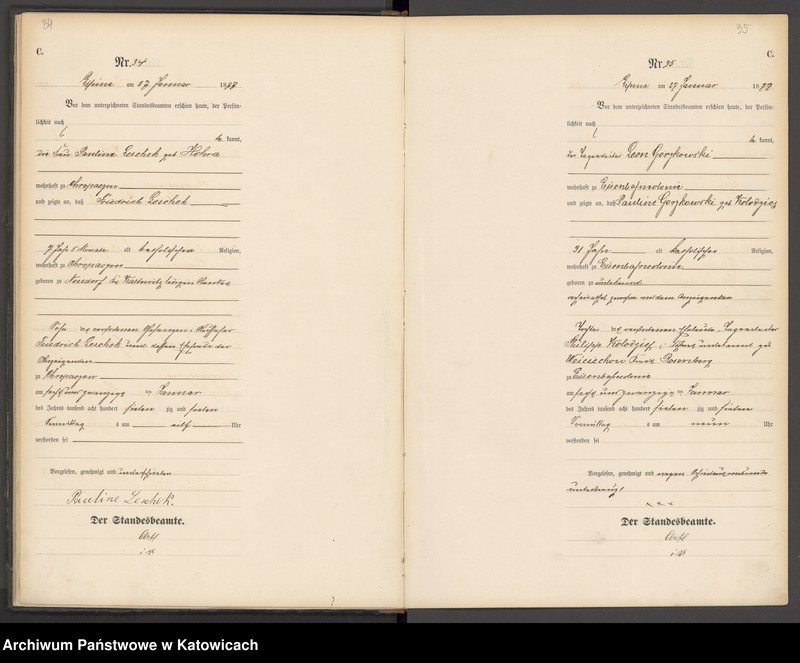 34
C.
Nr. 34
am 27 Januar 1877
Vor dem unterzeichneten Standesbeamten erschien heute, der Persön-
lichkeit nach
kannt,
die Frau Pauline Leschek geb
wohnhaft zu Chropaczow
und zeigte an, daß Friedrich Leschek
7 Jahr 5 Monate alt katholischer Religion,
wohnhaft zu Chropaczow
geboren zu Neudorf
Sohn des verstorbenen
Friedrich Leschek und dessen Ehefrau der
Anzeigenden
zu Chropaczow
am sechs und zwanzigs ten Januar
des Jahres tausend acht hundert sieben zig und sieben
Vormittag s um elf Uhr
verstorben sei
Vorgelesen, genehmigt und unterschrieben
Pauline Leschek.
Der Standesbeamte.
35
C.
Nr. 35
am 27 Januar 1877
Vor dem unterzeichneten Standesbeamten erschien heute, der Persön-
lichkeit nach
kannt,
der Tagearbeiter Leon Gorzkowski
wohnhaft zu Eisenbahncolonie
und zeigte an, daß Pauline Gorzkowski geb Kolodziej
31 Jahre alt katholischer Religion,
wohnhaft zu Eisenbahncolonie
geboren zu unbekannt
verheirathet gewesen mit dem Anzeigenden
Tochter der verstorbenen Eheleute, Tagearbeiter
Philipp Kolodziej
Rosenberg
zu Eisenbahncolonie
am sechs und zwanzigs ten Januar
des Jahres tausend acht hundert sieben zig und sieben
Vormittag s um neun Uhr
verstorben sei
Vorgelesen, genehmigt und wegen Schreibensunkunde
unterkreuzt
x x x
Der Standesbeamte.
Archiwum Państwowe w Katowicach